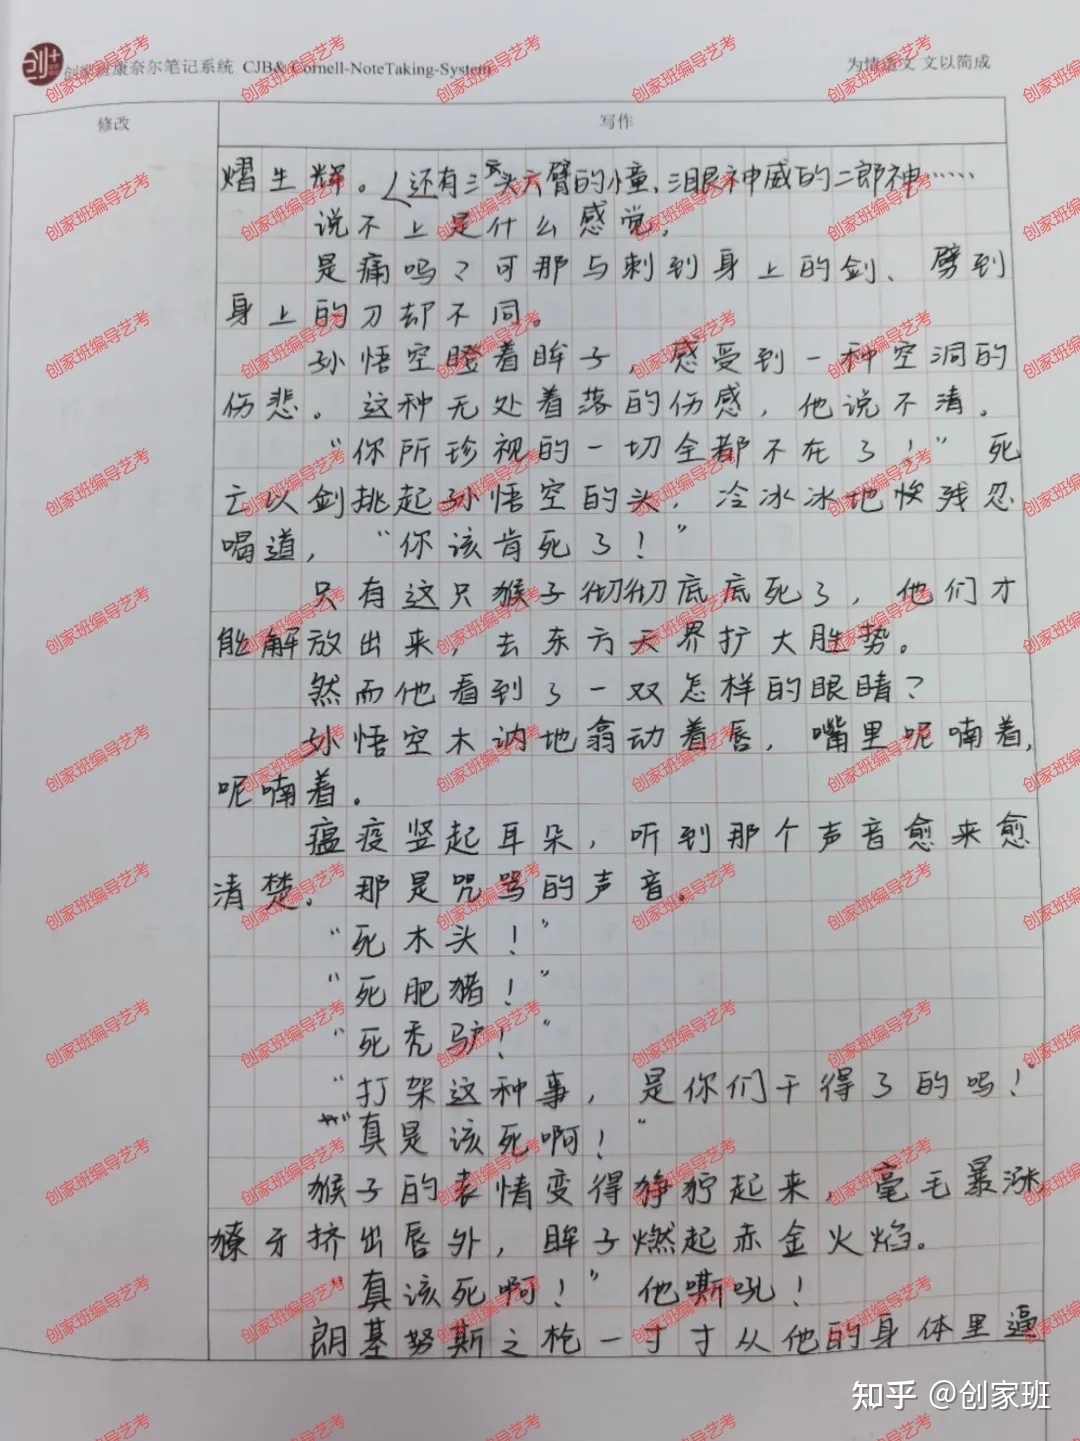 创家班康奈尔笔记系统 CJB& Cornell-NoteTaking-System
为情造文 文以简成
修改
写作
熠生辉。还有三头六臂的小童、三眼神威的二郎神……
说不上是什么感觉。
是痛吗？可那与刺到身上的剑、劈到
身上的刀却不同。
孙悟空瞪着眸子，感受到一种空洞的
伤悲。这种无处着落的伤感，他说不清。
“你所珍视的一切全都不在了！”死
亡以剑挑起孙悟空的头，冷冰冰地残忍
喝道，“你该肯死了！”
只有这只猴子彻彻底底死了，他们才
能解放出来，去东方天界扩大胜势。
然而他看到了一双怎样的眼睛？
孙悟空木讷地翕动着唇，嘴里呢喃着，
呢喃着。
瘟疫竖起耳朵，听到那个声音愈来愈
清楚。那是咒骂的声音。
“死木头！”
“死肥猪！”
“死秃驴！”
“打架这种事，是你们干得了的吗！
“真是该死啊！”
猴子的表情变得狰狞起来，毫毛暴涨
獠牙挤出唇外，眸子燃起赤金火焰。
“真该死啊！”他嘶吼！
朗基努斯之枪一寸寸从他的身体里逼
知乎 @创家班
创家班编导艺考